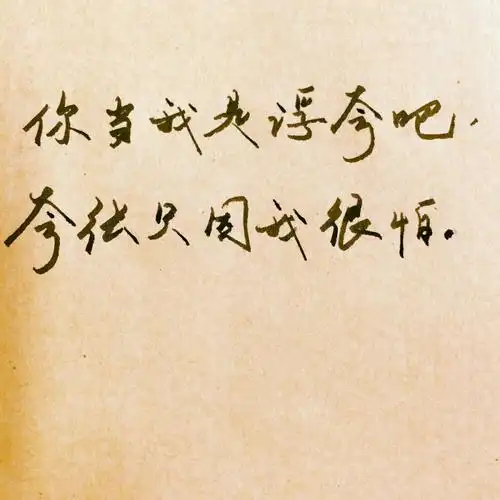 你当我是浮夸吧.
夸张只因我很怕。